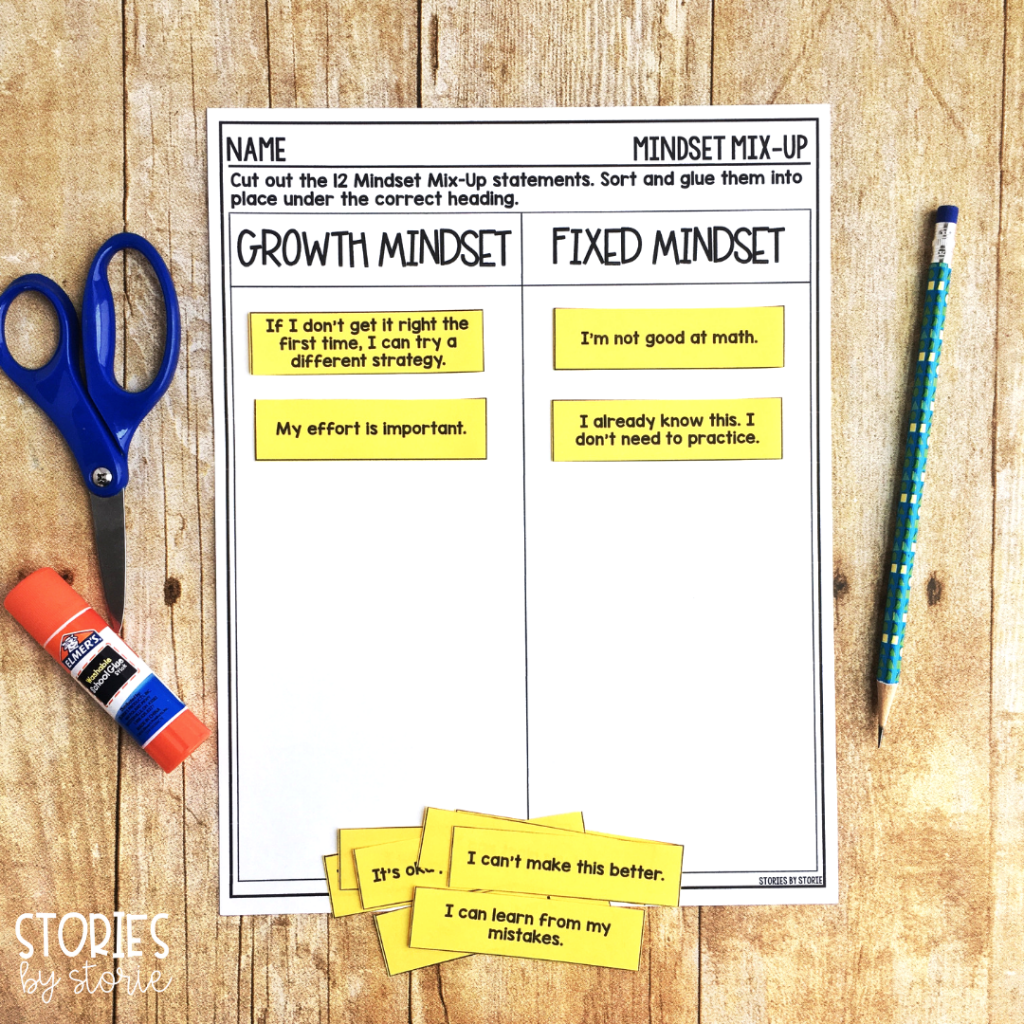 NAME
MINDSET MIX-UP
Cut out the 12 Mindset Mix-Up statements. Sort and glue them into
place under the correct heading.
GROWTH MINDSET
FIXED MINDSET
If I don't get it right the
first time, I can try a
different strategy.
I'm not good at math.
My effort is important.
I already know this. I
don't need to practice.
ELMER'S
Washable
School Glue
STICK
It's
I can't make this better.
I can learn from my
mistakes.
STORIES BY STORIE
STORIES
by storie